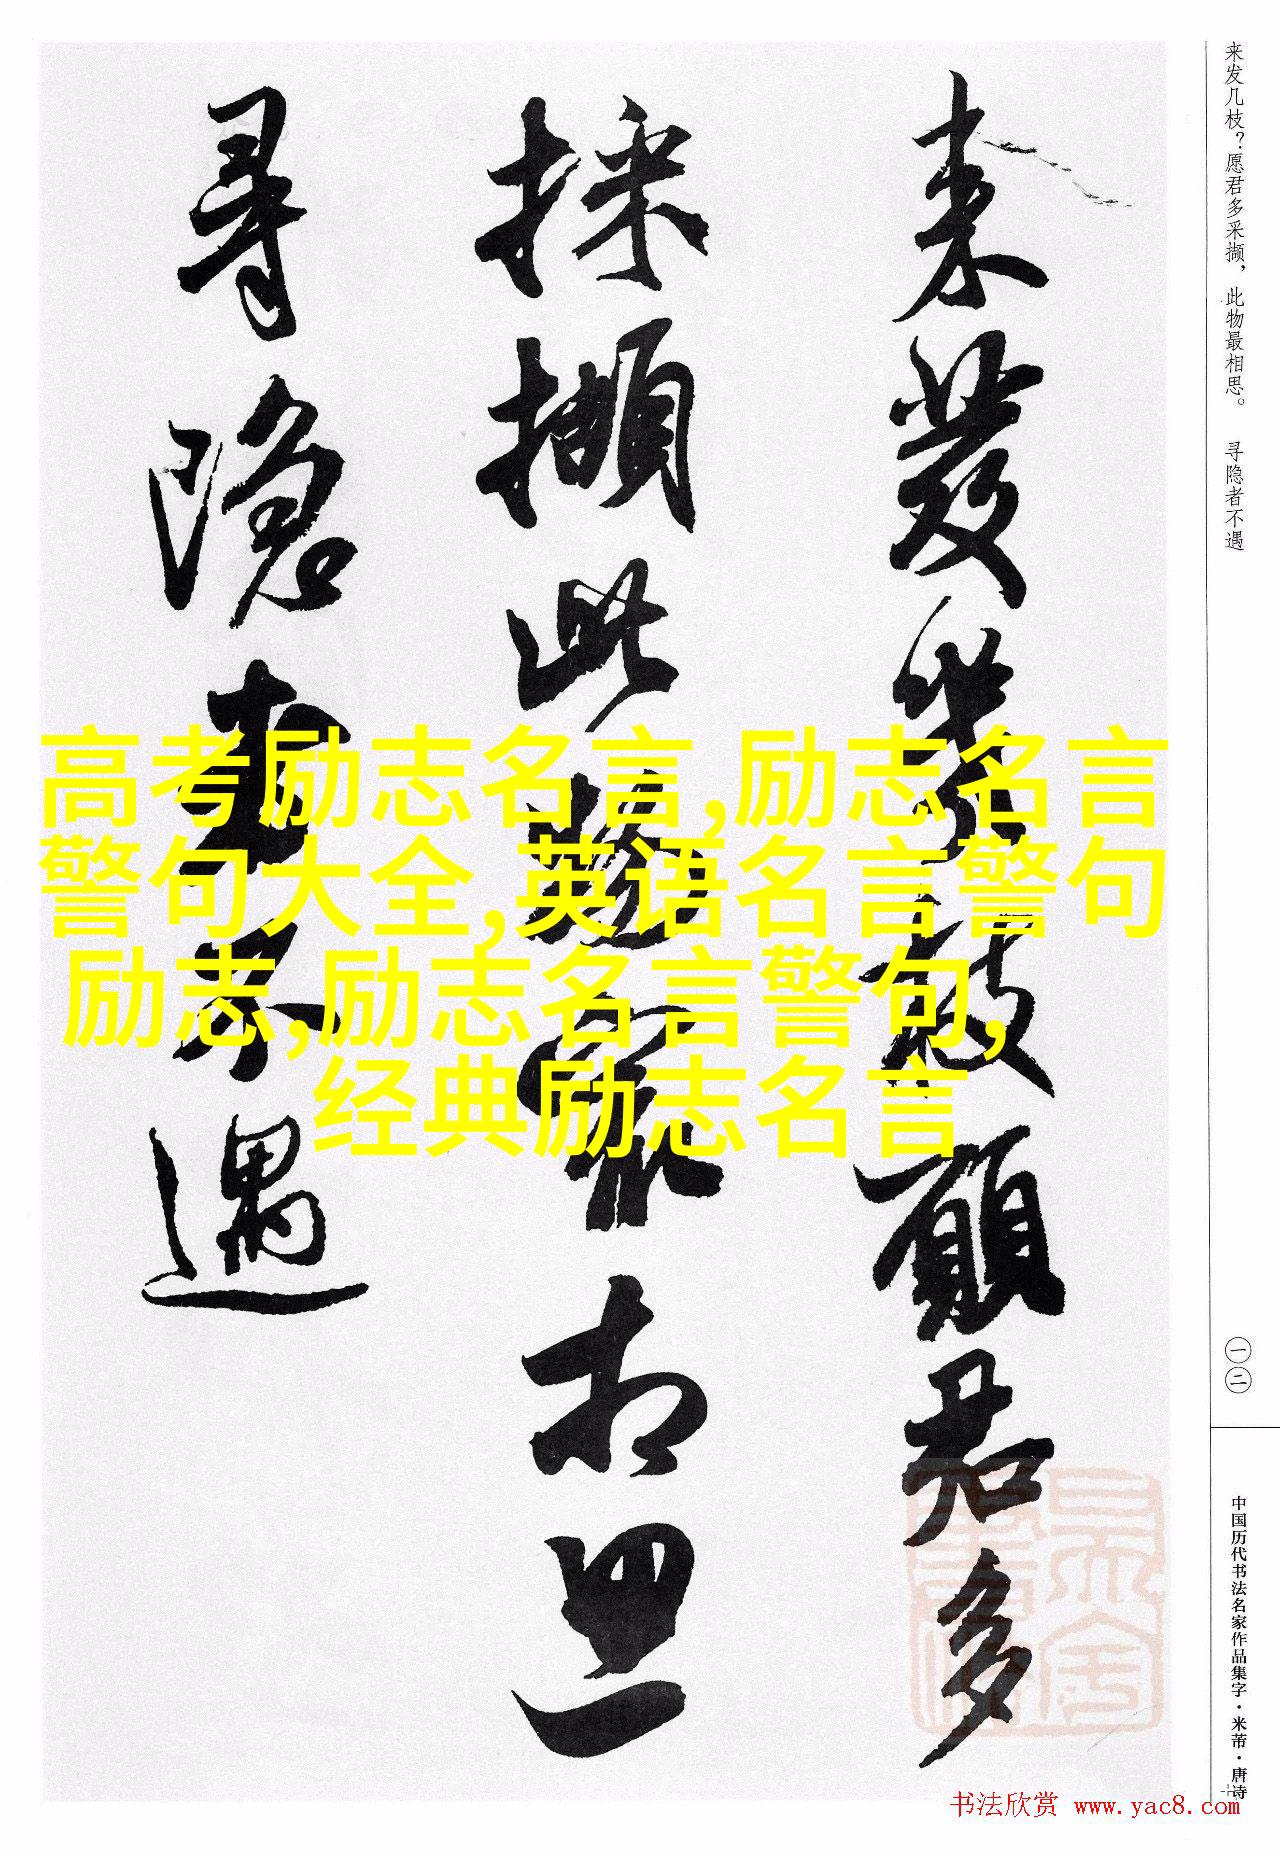 来发几枝？愿君多采撷，此物最相思。 寻隐者不遇
来發幾枝願君多
採擷此物最相思
尋隱者不遇
高考励志名言,励志名言
警句大全,英语名言警句
励志,励志名言警句,
经典励志名言
一二
中国历代书法名家作品集字·米芾·唐诗
书法欣赏 www.yac8.com